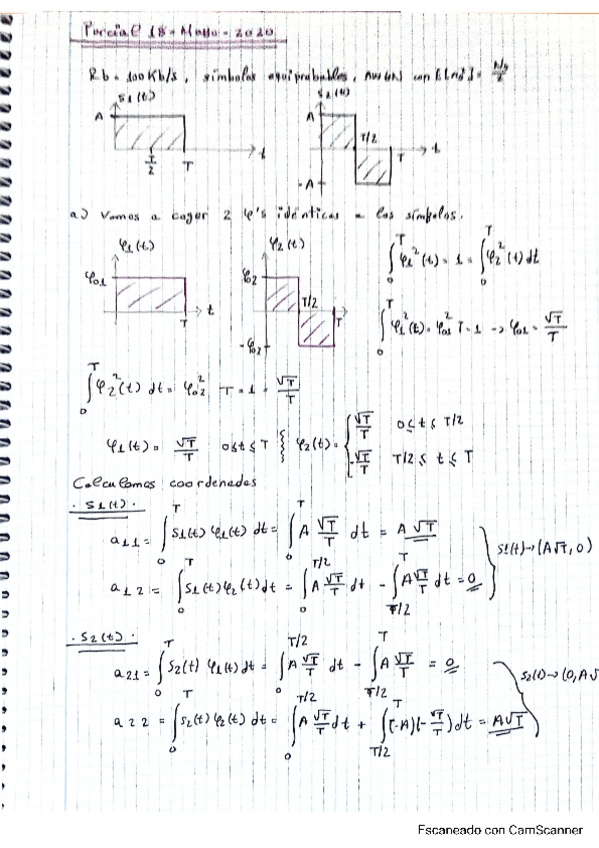 Parcial 18 - Mayo - 2020
Rb = 100 Kb/s, símbolos equiprobables, AWGN con E[|n|²] = N0/2
S1(t) S2(t)
A A
T/2 T t T/2 T t
-A
a) Vamos a coger 2 φ's idénticas a los símbolos.
φ1(t) φ2(t) ∫₀ᵀ φ1²(t) = 1 = ∫₀ᵀ φ2²(t) dt
φ01 T t φ02 T/2 T -φ02
∫₀ᵀ φ1²(t) = φ01² T = 1 -> φ01 = √T/T
∫₀ᵀ φ2²(t) dt = φ02² T = 1 = √T/T
φ1(t) = √T/T 0≤t≤T φ2(t) = { √T/T 0≤t≤T/2
-√T/T T/2≤ t ≤ T
Calculamos coordenadas
· S1(t) ·
a11 = ∫₀ᵀ S1(t) φ1(t) dt = ∫₀ᵀ A √T/T dt = A√T
S1(t)→(A√T, 0)
a12 = ∫₀ᵀ S1(t) φ2(t) dt = ∫₀^T/2 A √T/T dt - ∫_T/2^T A √T/T dt = 0
· S2(t) ·
a21 = ∫₀ᵀ S2(t) φ1(t) dt = ∫₀^T/2 A √T/T dt - ∫_T/2^T A √T/T = 0
S2(t)→(0, A√
a22 = ∫₀ᵀ S2(t) φ2(t) dt = ∫₀^T/2 A √T/T dt + ∫_T/2^T (-A)(-√T/T) dt = A√T
Escaneado con CamScanner